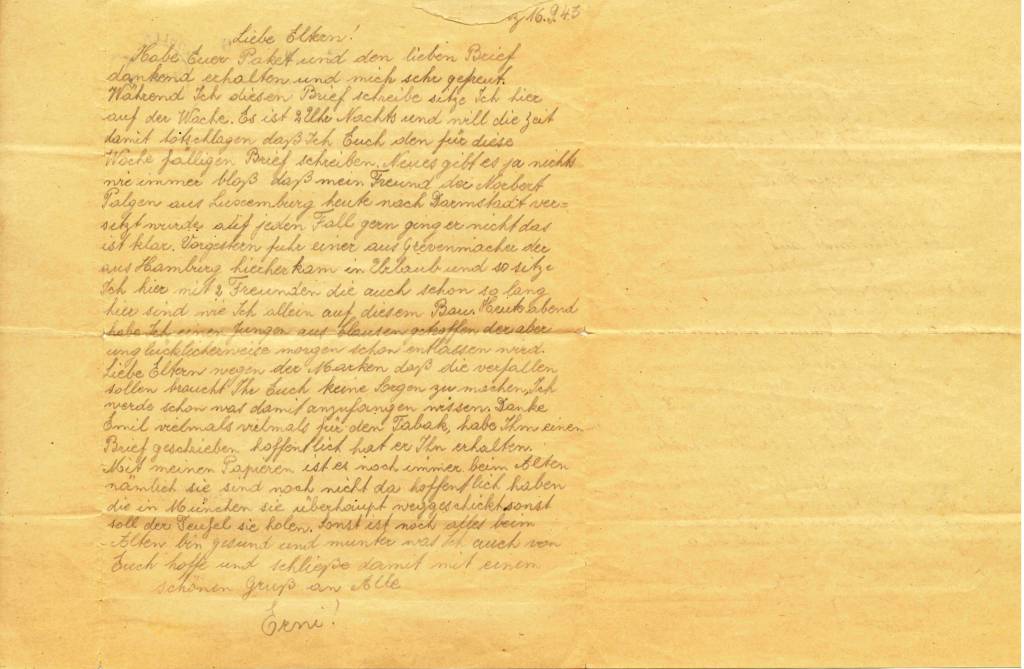 16.9.43
Liebe Eltern!
Habe Euer Paket und den lieben Brief
dankend erhalten und mich sehr gefreut.
Während Ich diesen Brief schreibe sitze Ich hier
auf der Wache. Es ist 2 Uhr Nachts und will die Zeit
damit totschlagen daß Ich Euch den für diese
Woche fälligen Brief schreiben. Neues gibt es ja nichts
wie immer bloß daß mein Freund der Norbert
Palgen aus Luxemburg heute nach Darmstadt ver=
setzt wurde, auf jeden Fall gern ging er nicht das
ist klar. Vorgestern fuhr einer aus Grevenmacher der
aus Hamburg hierher kam in Urlaub und so sitze
Ich hier mit 2 Freunden die auch schon so lang
hier sind wie Ich allein auf diesem Bau. Heute abend
habe Ich einen Jungen aus Clausen getroffen der aber
unglücklicherweise morgen schon entlassen wird.
Liebe Eltern wegen der Marken daß die verfallen
sollen braucht Ihr Euch keine Sorgen zu machen, Ich
werde schon was damit anzufangen wissen. Danke
Emil vielmals vielmals für den Tabak, habe Ihm einen
Brief geschrieben hoffentlich hat er Ihn erhalten.
Mit meinen Papieren ist es noch immer beim Alten
nämlich sie sind noch nicht da hoffentlich haben
die in München sie überhaupt weggeschickt sonst
soll der Teufel sie holen. Sonst ist noch alles beim
Alten bin gesund und munter was Ich auch von
Euch hoffe und schließe damit mit einem
schönen Gruß an Alle
Erni!